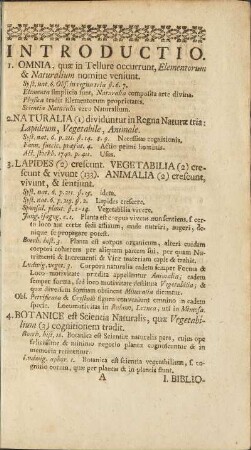 INTRODUCTIO.
1. OMNIA, quæ in Tellure occurrunt, Elementorum
& Naturalium nomine veniunt.
Syst. nat. 6. Obs. in regna tria §. 6. 7.
Elementa simplicia sunt, Naturalia composita arte divina.
Physica tradit Elementorum proprietates.
Scientia Naturalis vero Naturalium.
2. NATURALIA (1) dividuntur in Regna Naturæ tria:
Lapideum, Vegetabile, Animale.
Syst. nat. 6. p. 211. §. 14. Necessitas cognitionis.
Fann. suecic. præfat. 4. Actio primi hominis.
Act. stockh. 1740. p. 411. Usus.
3. LAPIDES (2) crescunt. VEGETABILIA (2) cre-
scunt & vivunt (133). ANIMALIA (2) crescunt,
vivunt, & sentiunt.
Syst. nat. 6. p. 211. §. 15. idem.
Syst. nat. 6. p. 219. §. 2. Lapides crescere.
Sponsal. plant. §. 1-14. Vegetabilia vivere.
Jung. isagog. c. 1. Planta est corpus vivens non sentiens, s. cer-
to loco aut certæ sedi affixum, unde nutriri, augeri, de-
nique se propagare potest.
Boerh. hist. 3. Planta est corpus organicum, alteri cuidam
corpori cohærens per aliquam partem sui, per quam Nu-
trimenti & Incrementi & Vitæ materiam capit & trahit.
Ludwig. veget. 3. Corpora naturalia eadem semper Forma &
Loco-motivitate prædita appellantur Animalia; eadem
semper forma, sed loco motivitate destituta Vegetabilia; &
quæ diversam formam obtinent Mineralia dicuntur.
Obs. Petrificata & Crystalli figura conveniunt omnino in eadem
specie. Locomotivitas in Balano, Lernea, uti in Mimosa.
4. BOTANICE est Scientia Naturalis, quæ Vegetabi-
lium (3) cognitionem tradit.
Boerh. hist. 16. Botanica est Scientiæ naturalis pars, cujus ope
felicissime & minimo negotio plantæ cognoscuntur & in
memoria retinentur.
Ludwig. aphor. 1. Botanica est scientia vegetabilium, s. co-
gnitio eorum, quæ per plantas & in plantis fiunt.
A I. BIBLIO-